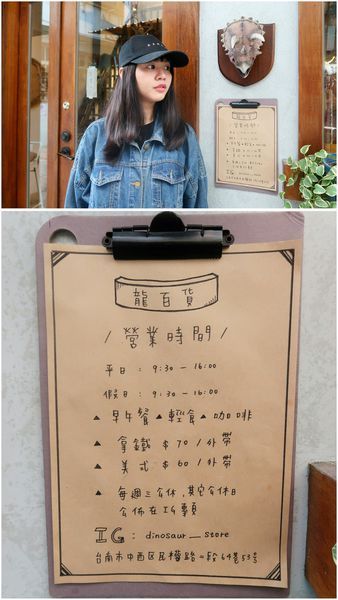 龍百貨
/ 營業時間 /
平日 : 9:30 - 16:00
假日 : 9:30 - 16:00
▲ 早午餐 ▲ 輕食 ▲ 咖啡
▲ 拿鐵 $ 70 / 外帶
▲ 美式 $ 60 / 外帶
▲ 每週三公休,其它公休日
公佈在IG專頁
IG : dinosaur__store
台南市中西区民權路一段64巷53号